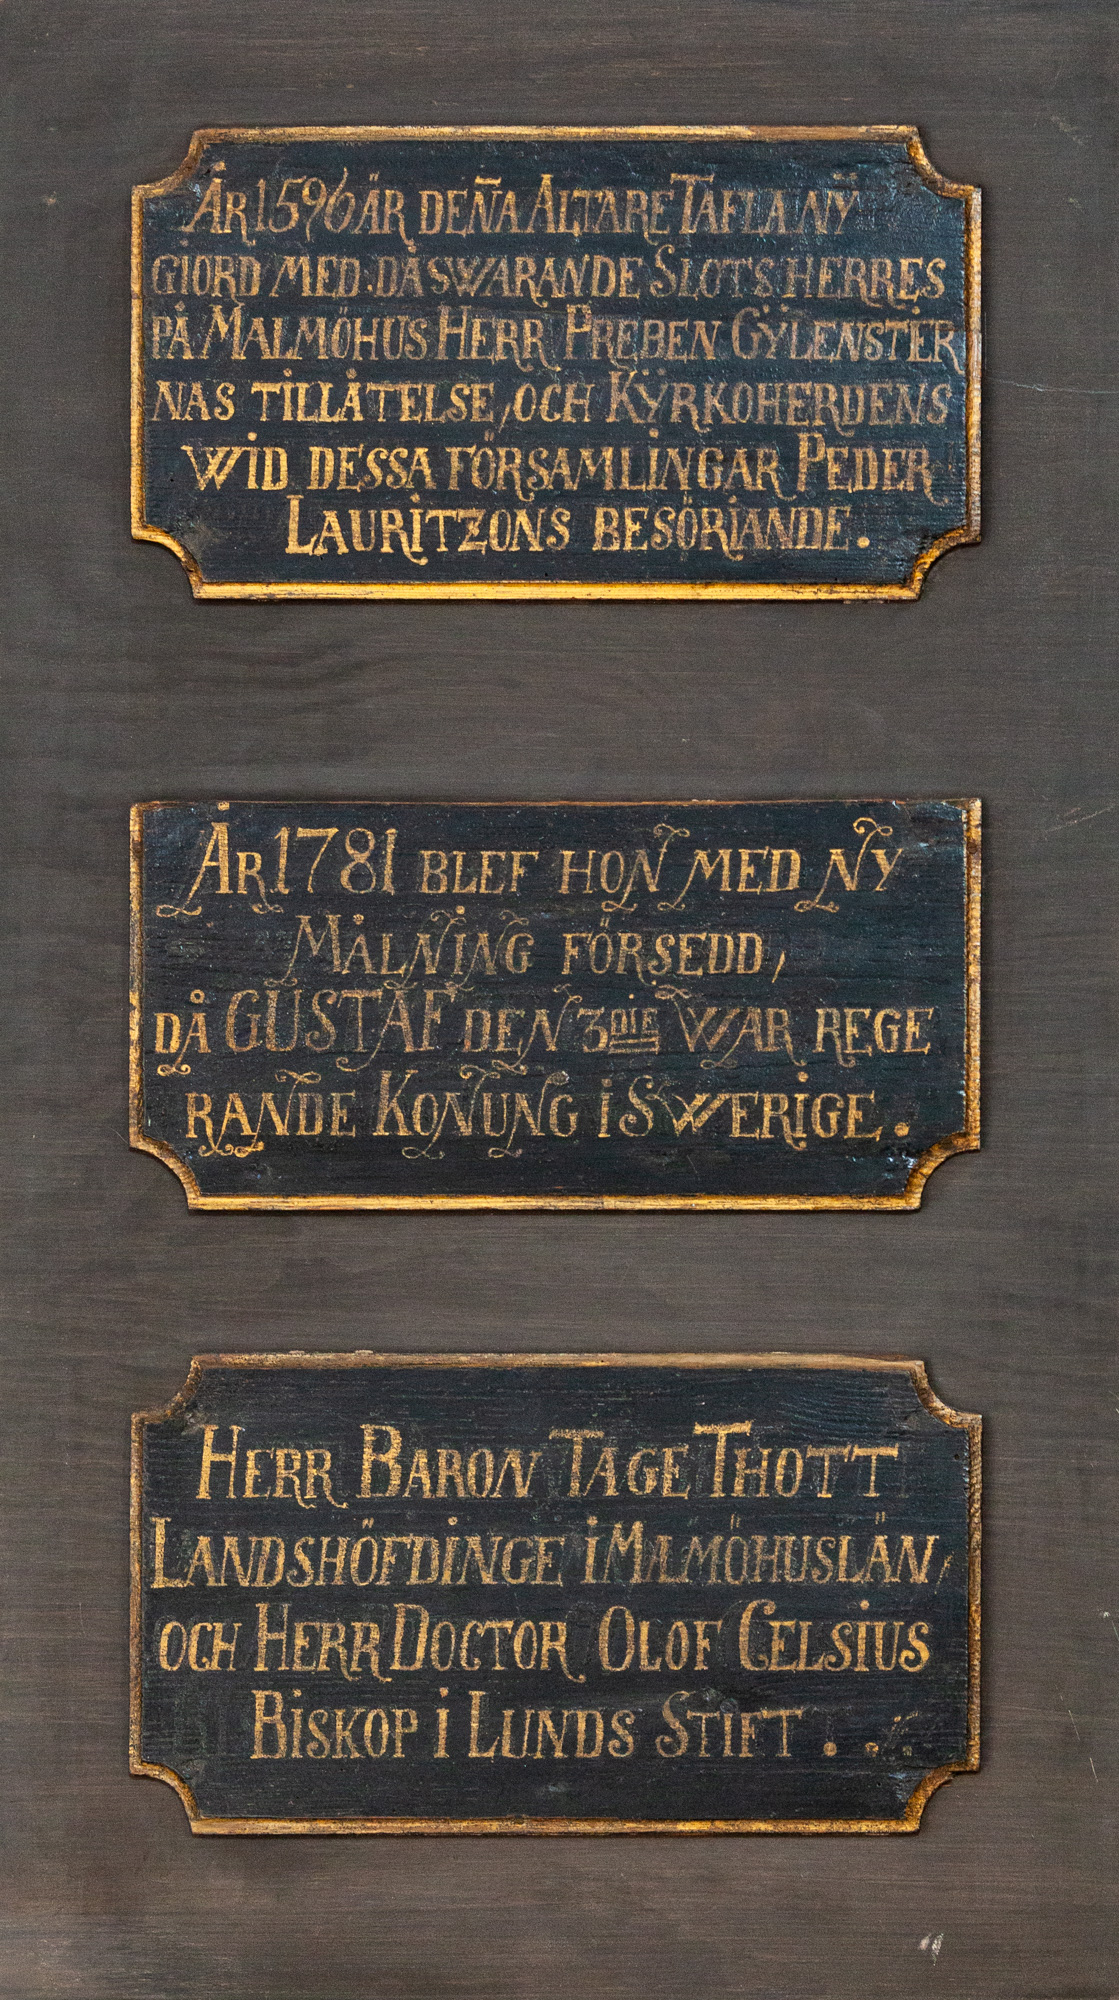 ÅR 1596 ÄR DEÑA ALTARE TAFLA NŸ
GIORD MED DÅSWARANDE SLOTSHERRES
PÅ MALMÖHUS HERR PREBEN GŸLENSTER
NAS TILLÅTELSE, OCH KŸRKOHERDENS
WID DESSA FÖRSAMLINGAR PEDER
LAURITZONS BESÖRIANDE.
ÅR 1781 BLEF HON MED NY
MÅLNING FÖRSEDD,
DÅ GUSTAF DEN 3DIE WAR REGE
RANDE KONUNG I SWERIGE.
HERR BARON TAGE THOTT
LANDSHÖFDINGE I MALMÖHUSLÄN,
OCH HERR DOCTOR OLOF CELSIUS
BISKOP I LUNDS STIFT...